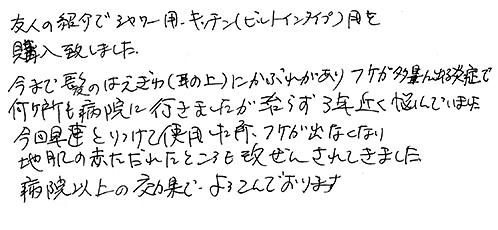 友人の紹介でシャワー用・キッチン(ビルトインタイプ)用を
購入致しました。
今まで髪のはえぎわ(耳の上)にかぶれがありフケが多量に出る炎症で
何ケ所も病院に行きましたが治らず3年近く悩んでいました
今回早速とりつけて使用した所、フケが出なくなり
地肌の赤ただれたところも改ぜんされてきました
病院以上の効果で、よろこんでおります